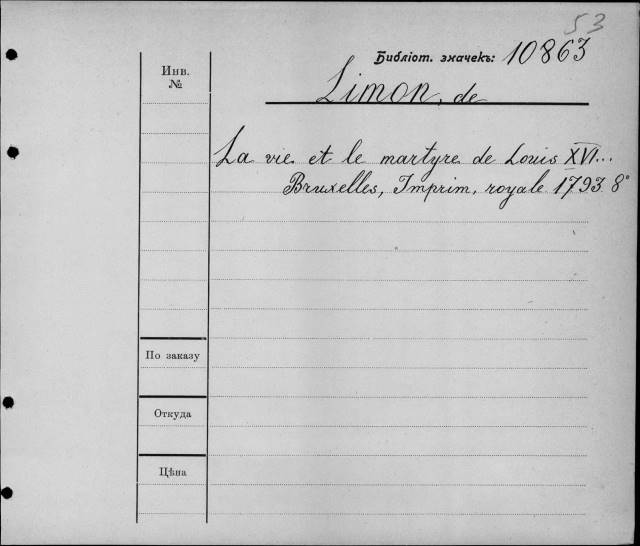 53
Библіот. значекъ: 10863
Инв.
№
Limon, de
La vie et le martyre de Louis XVI...
Bruxelles, Imprim. royale 1793 8°
По заказу
Откуда
Цѣна